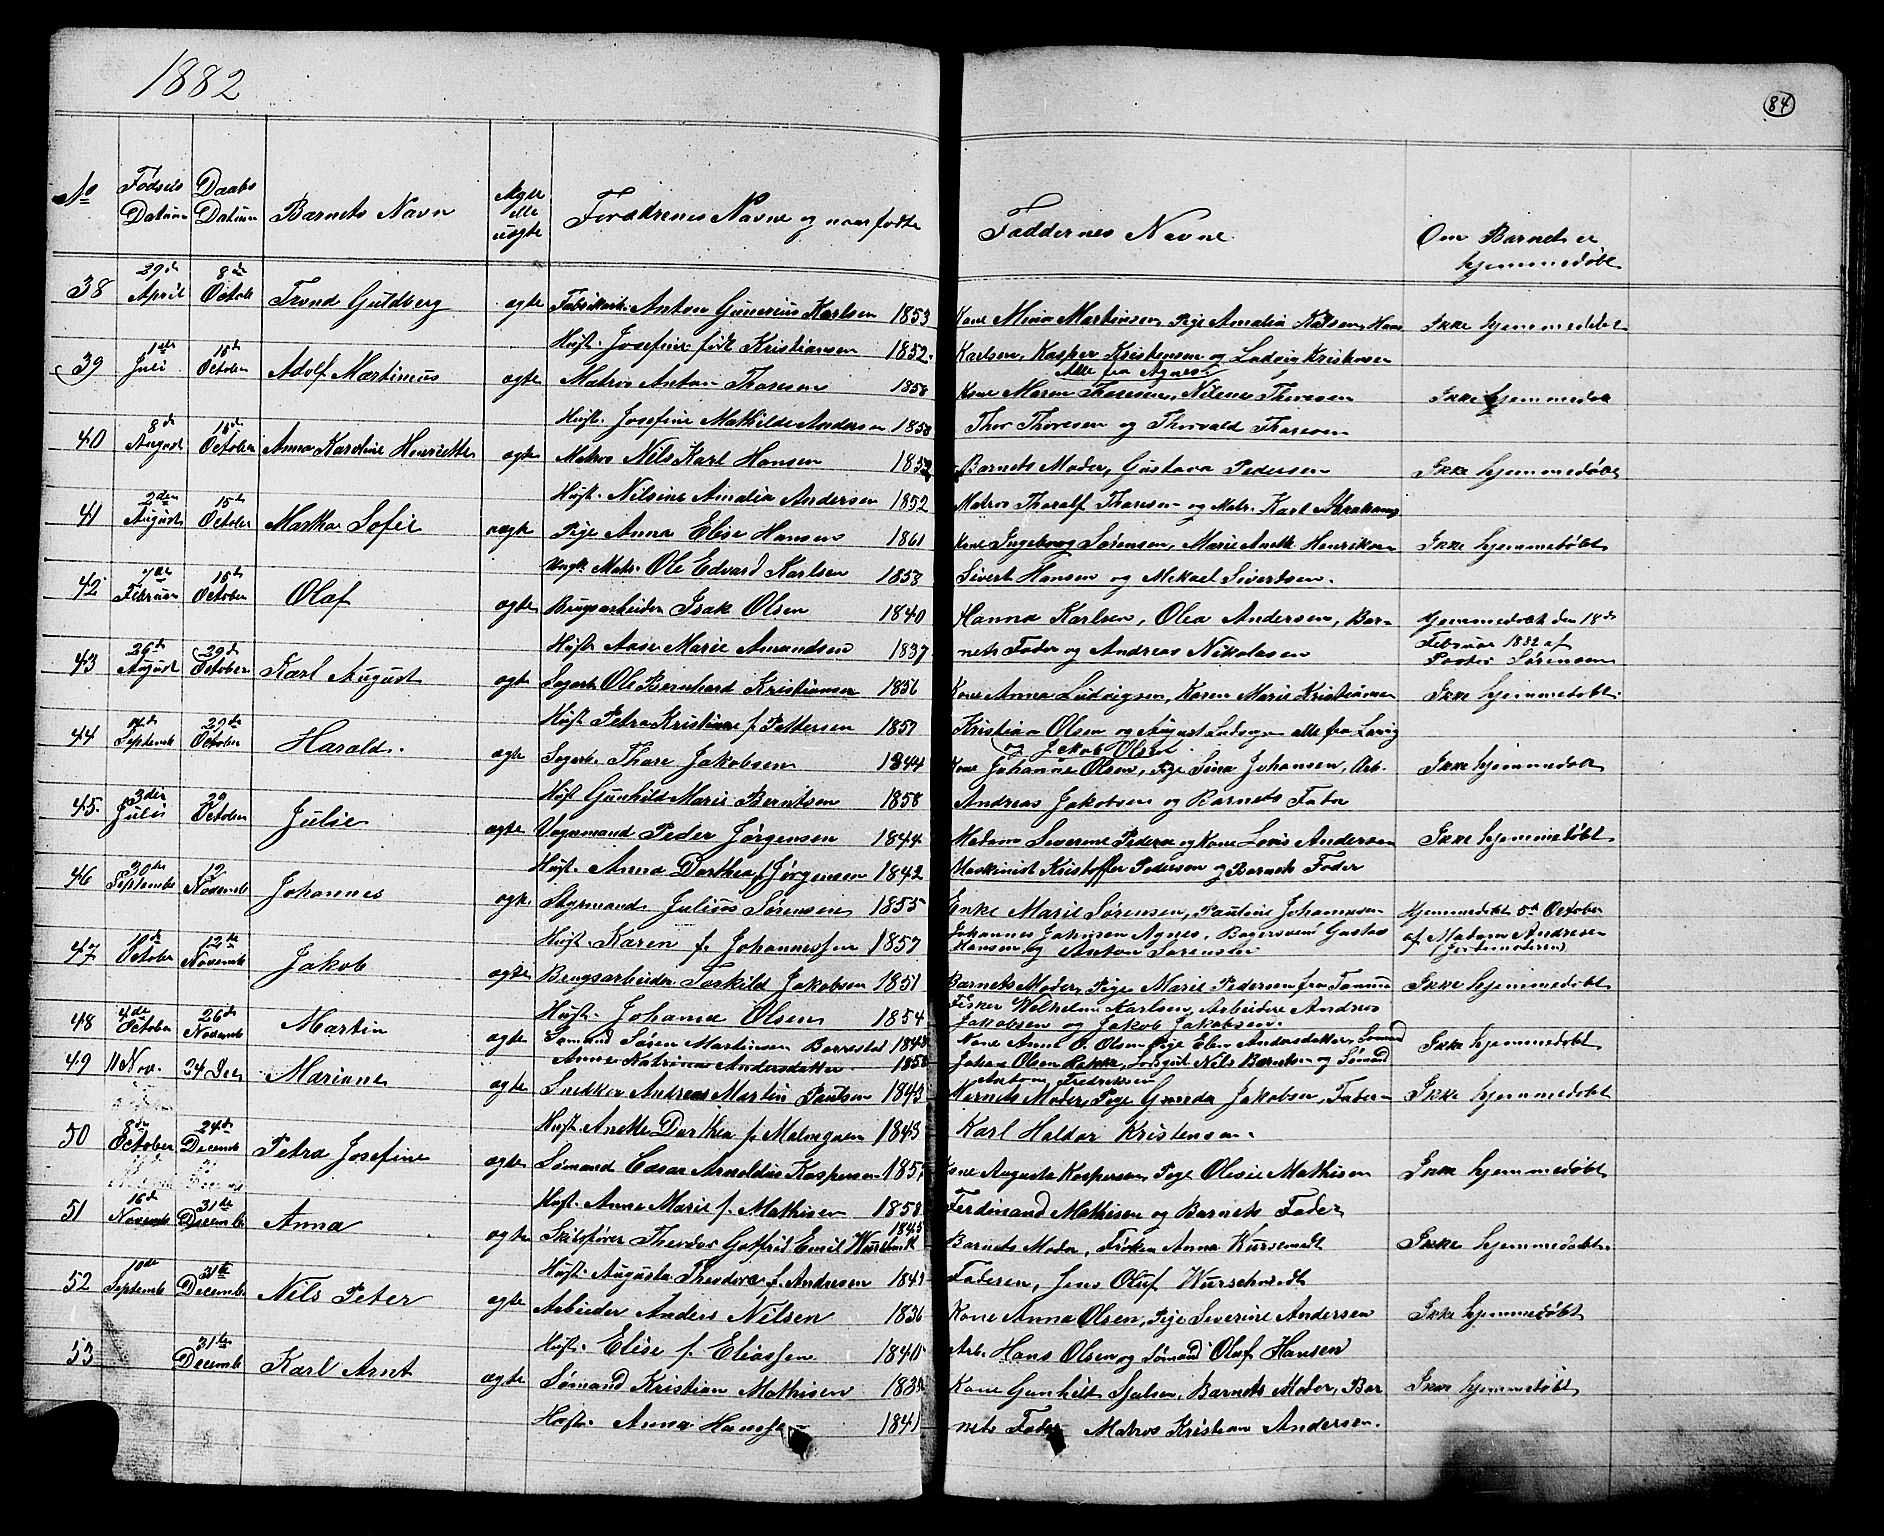 1882
84
No
Fødsels Datum
Daabs Datum
Barnets Navn
Ægte elle uægte
Forældrenes Navne og naar fødte
Faddernes Navne
Om Barnet er hjemmedøbt
38 29de April 8de Octobr Trond Guldberg ægte Fabrikarb. Anton Gunerius Karlsen 1853 Kone Mina Martinsen, Pige Amalia Karlsen, Hans Ikke hjemmedøbt
Hust. Josefine født Kristiansen 1852. Karlsen, Kasper Kristensen og Ludvig Kristiansen
Alle fra Agnes.
39 1ste Juli 15de October Adolf Martinius ægte Matros Anton Thoresen 1858 Kone Maren Thoresen, Nilene Thoresen Ikke hjemmedøbt
Hust. Josefine Mathilde Andersen 1858 Thor Thoresen og Thorvald Thoresen
40 8de August 15de October Anna Karoline Henriette ægte Matros Nils Karl Hansen 1852 Barnets Moder, Gustava Pedersen Ikke hjemmedøbt
Hust. Nilsine Amalia Andersen 1852 Matros Thoralf Thoresen og Matr. Karl Abrahams
41 2den August 15de October Martha Sofie uægte Pige Anna Elise Hansen 1861 Kone Ingeborg Sørensen, Marie Anette Henriksen Ikke hjemmedøbt
Ungk. Matr. Ole Edvard Karlsen 1858 Sivert Hansen og Mikael Sivertsen.
42 7de Februar 15de October Olaf ægte Brugsarbeider Isak Olsen 1840 Hanna Karlsen, Olea Andersen, Bar- Hjemmedøbt den 18de
Hust. Aase Marie Amundsen 1837 nets Fader og Andreas Nikolasen Februar 1882 af
Sørensen
43 26de August 29de October Karl August ægte Sagarb. Ole Bernhard Kristiansen 1856 Kone Anna Ludvigsen, Karen Marie Kristiansen Ikke hjemmedøbt.
Hust. Petra Kristine f. Pettersen 1857 Kristian Olsen og August Ludvigsen alle fra Larvig
og Jakob Olsen
44 Septemb 29de October Harald. ægte Sagarb. Thore Jakobsen 1844 Kone Johanne Olsen, Pige Sina Johansen, Arb. Ikke hjemmedøbt
Hust. Gunhild Marie Berntsen 1858 Andreas Jakobsen og Barnets Fader
45 3die Juli 29 October Julie ægte Vognmand Peder Jørgensen 1844 Madam Severine Pedersen og Kone Lovis Andersen Ikke hjemmedøbt
Hust. Anna Dorthea f. Jørgensen 1842 Maskinist Kristoffer Pedersen og Barnets Fader
46 30te Septembr 12 Novemb Johannes ægte Styrmand Julius Sørensen 1855 Enke Marie Sørensen, Pauline Johannesen Hjemmedøbt 5te October
Hust. Karen f. Johannessen 1857 Johannes Johnsen Agnes, Bagersvend Gustav af Madam Andresen
Hansen og Anton Sørensen (Jordemoderen)
47 10de October 12te Novemb Jakob ægte Brugsarbeider Torkild Jakobsen 1851 Barnets Moder, Pige Marie Pedersen fra Ikke hjemmedøbt
Hust. Johanne Olsen 1854 Fisker Wilhelm Karlsen, Arbeidere Andreas
Jakobsen og Jakob Jakobsen.
48 4de October 26de Novemb Martin ægte Sømand Søren Martinsen Borrestad Kone Anne O. Olsen, Pige Elen Andersdatter, Sømand Ikke hjemmedøbt
Anne Katrine Andersdatter 1858 Johan Olsen Nils Berntsen og Sømand
Anton Fredriksen
49 11 Nov. 24 Dec Mariane ægte Snedker Andreas Martin Paulsen 1843 Barnets Moder, Pige Jakobsen, Faderen Ikke hjemmedøbt
Hust. Anette Dorthea f. 1843 Karl Haldor Kristensen.
50 8de October 24de Decemb Petra Josefine ægte Sømand Cæsar Arnoldus Kaspersen 1857 Kone Augusta Kaspersen, Pige Olevie Mathisen Ikke hjemmedøbt
Hust. Anne Marie f. Mathisen 1858 Ferdinand Mathisen og Barnets Fader
51 16de Novemb 31te Decemb Anna ægte Skibsfører Theodor Gotfrid Emil Wurschmidt 1845 Barnets Moder, Frøken Anna Wurschmidt Ikke hjemmedøbt.
Hust. Augusta Theodora f. Andresen Faderen, Jens Oluf Wurschmidt
52 10de Septemb 31te Decemb Nils Peter ægte Arbeider Anders Nilsen 1836 Kone Anna Olsen, Pige Severine Andersen Ikke hjemmedøbt
Hust. Elise f. Eliassen 1840 Arb. Hans Olsen og Sømand Olaf Hansen
53 31te Decemb Karl Arnt ægte Sømand Kristian Mathisen Kone Gunhilt Barnets Moder, Bar Ikke hjemmedøbt
Hust. Anna Hansen 1841 nets Fader Matros Kristian Andersen.